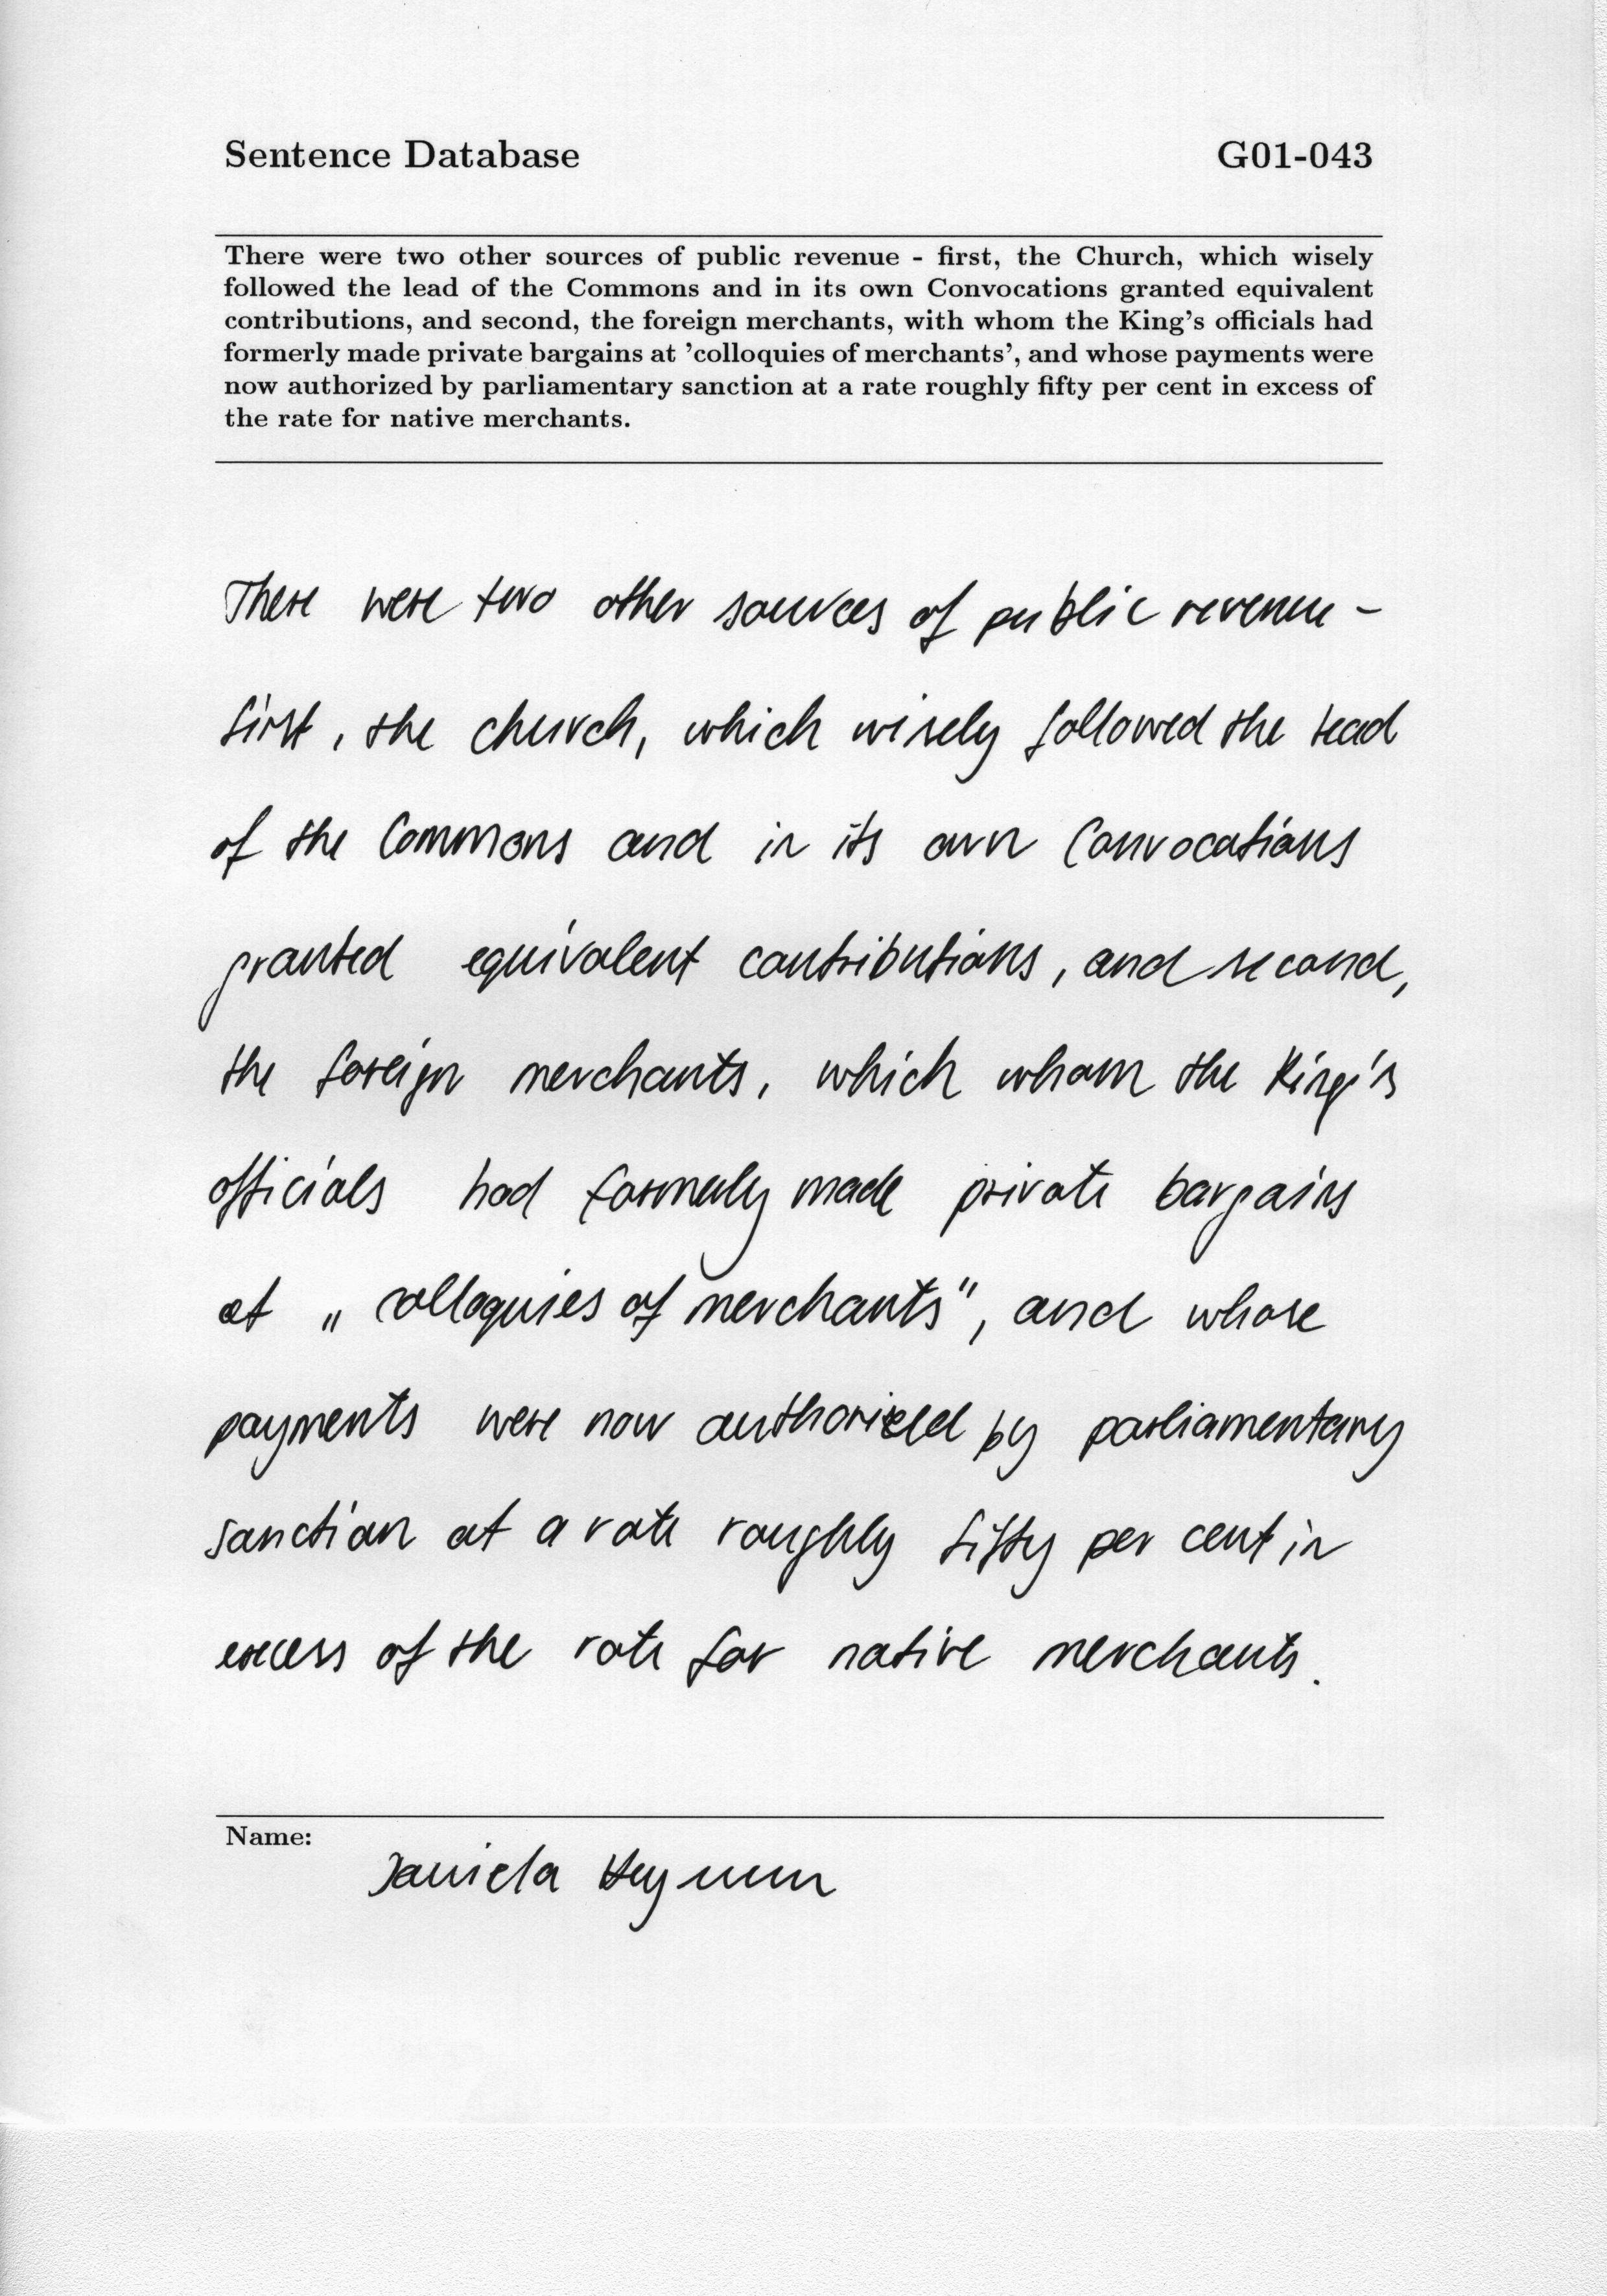 Sentence Database G01-043
There were two other sources of public revenue - first, the Church, which wisely
followed the lead of the Commons and in its own Convocations granted equivalent
contributions, and second, the foreign merchants, with whom the King's officials had
formerly made private bargains at 'colloquies of merchants', and whose payments were
now authorized by parliamentary sanction at a rate roughly fifty per cent in excess of
the rate for native merchants.
There were two other sources of public revenue -
first, the church, which wisely followed the lead
of the Commons and in its own Convocations
granted equivalent contributions, and second,
the foreign merchants, which whom the King's
officials had formerly made private bargains
at „colloquies of merchants", and whose
payments were now authorized by parliamentary
sanction at a rate roughly fifty per cent in
excess of the rate for native merchants.
Name:
Daniela